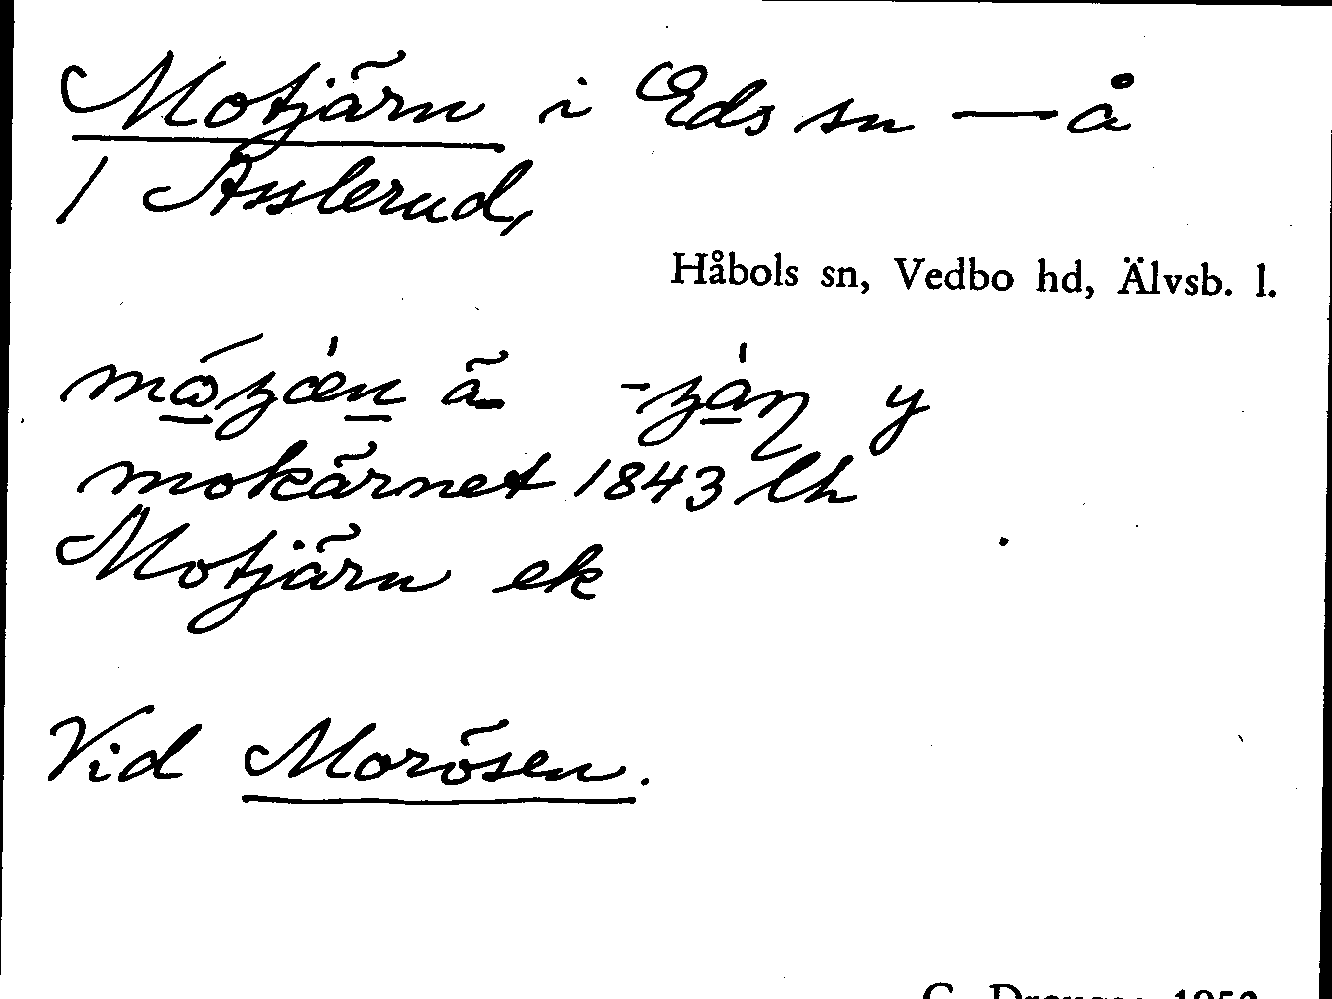 Motjärn i Eds sn — å
1 Asslerud,
Håbols sn, Vedbo hd, Älvsb. l.
ä y
mokärnet 1843 lh
Motjärn ek
Vid Morösen.